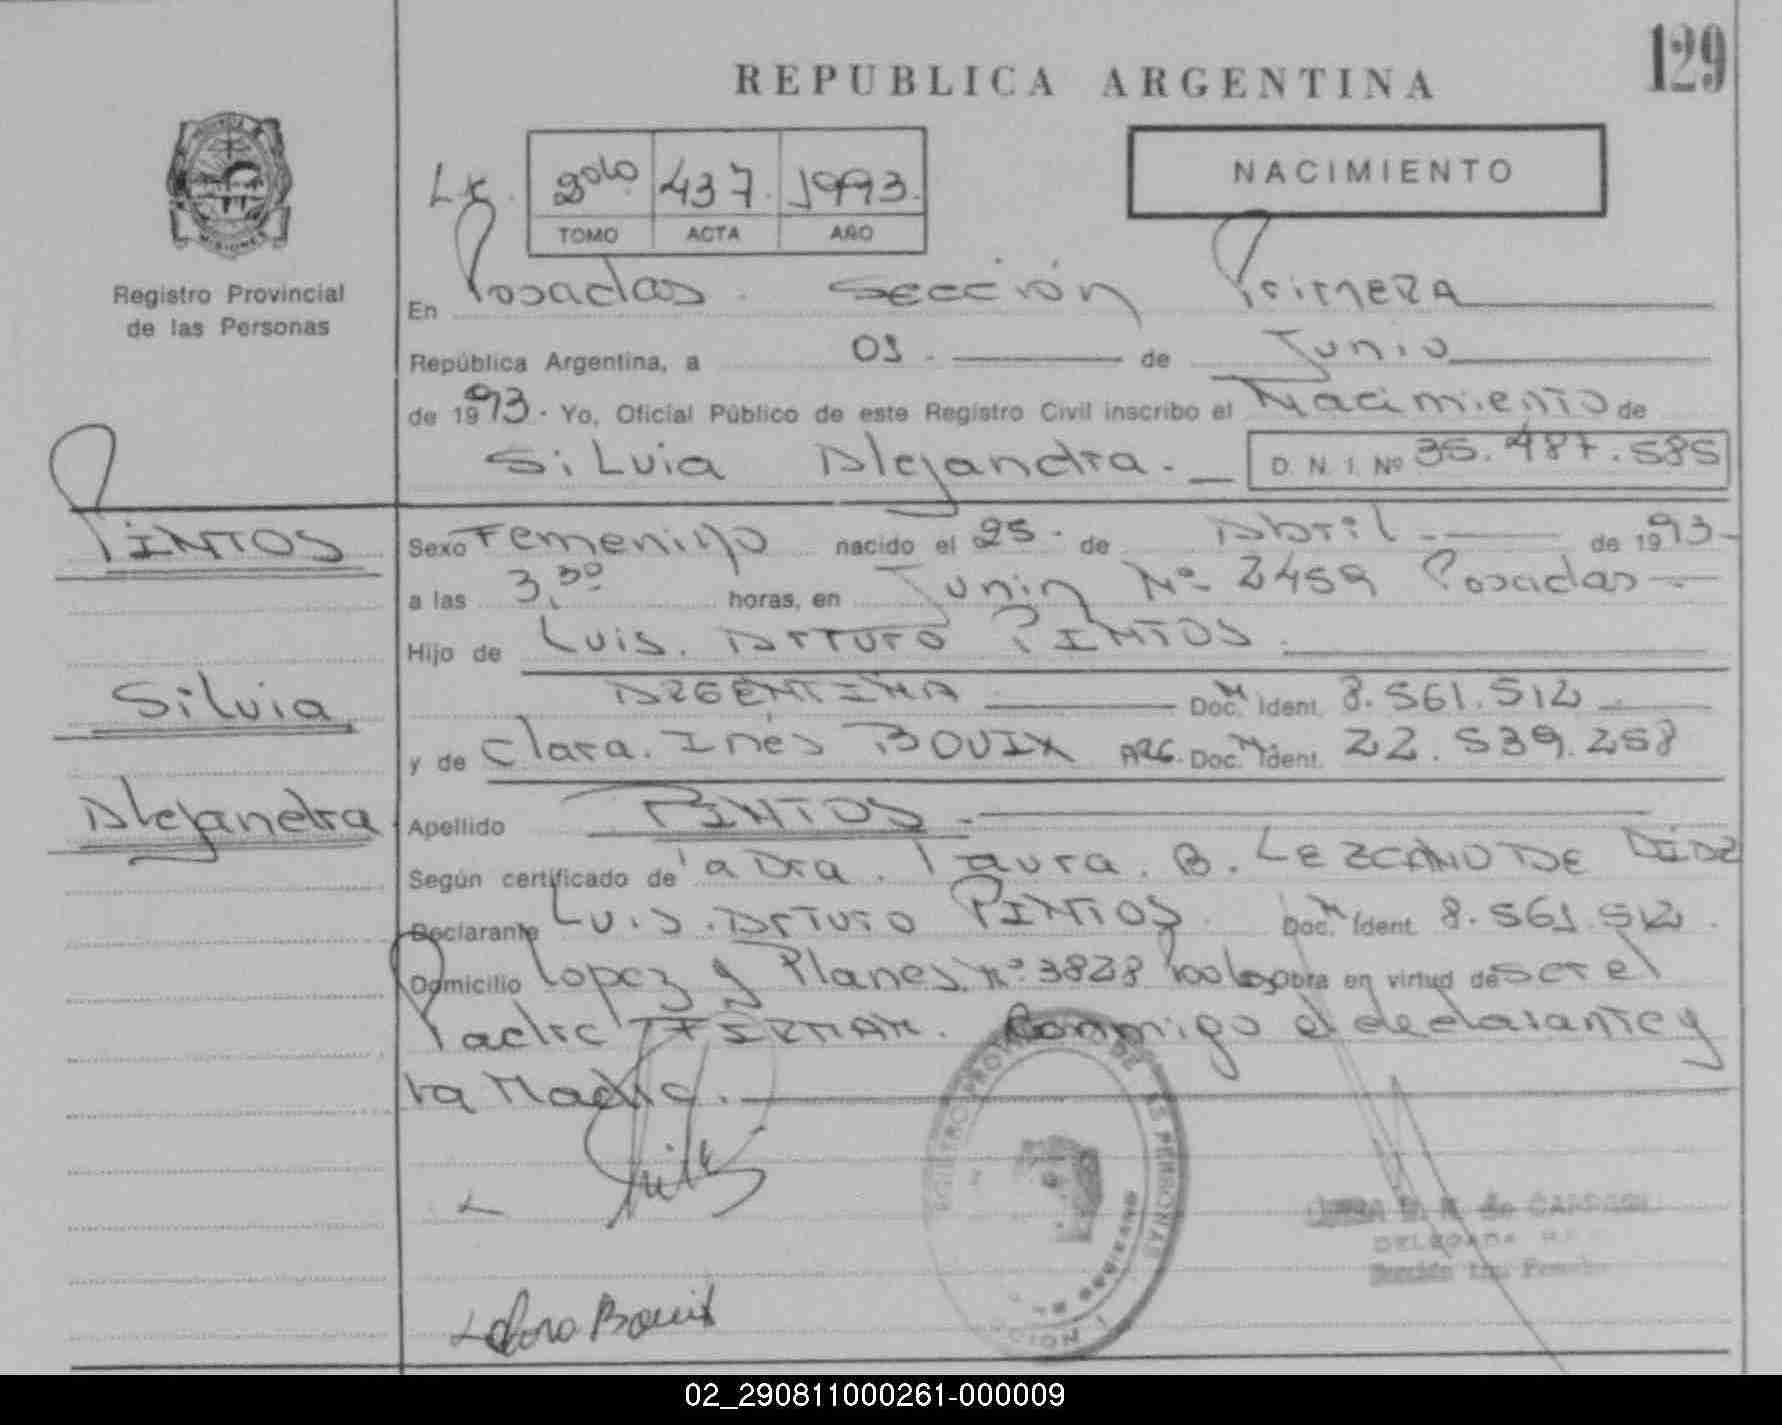 129
REPUBLICA ARGENTINA
NACIMIENTO
2do 437. 1993.
TOMO ACTA AÑO
Registro Provincial
de las Personas
En Posadas. Sección Primera
República Argentina, a 01. de Junio
de 1993. Yo, Oficial Público de este Registro Civil inscribo el Nacimiento de
Silvia Alejandra. D. N. I. Nº 35.487.585
PINTOS
Sexo Femenino nacido el 25. de Abril de 1993
a las 3,30 horas, en Junin Nº 2459 Posadas
Hijo de Luis. Arturo PINTOS.
Silvia
ARGENTINA Doc. M Ident. 8.561.512
y de Clara. Inés BOUIX ARG. Doc. M Ident. 22.539.258
Alejandra
Apellido PINTOS.
Según certificado de la Dra. Laura. B. LEZCANO DE DIAZ
Declarante Luis. Arturo PINTOS Doc. M Ident. 8.561.512.
Domicilio Lopez y Planes. nº 3828 obra en virtud de ser el
Padre FIRMAN. Conmigo el declarante y
la Madre.
REGISTRO PROVINCIAL DE LAS PERSONAS
DELEGADA
Sección 1ra. Posadas
Clara Bouix
02_290811000261-000009